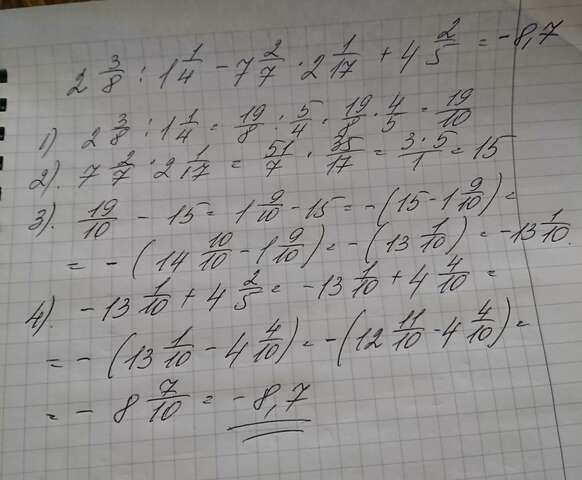 2 3/8 : 1 1/4 - 7 2/7 · 2 1/17 + 4 2/5 = -8,7
1) 2 3/8 : 1 1/4 = 19/8 : 5/4 = 19/8 · 4/5 = 19/10
2). 7 2/7 · 2 1/17 = 51/7 · 35/17 = 3·5/1 = 15
3). 19/10 - 15 = 1 9/10 - 15 = -(15 - 1 9/10) =
= -(14 10/10 - 1 9/10) = -(13 1/10) = -13 1/10.
4). -13 1/10 + 4 2/5 = -13 1/10 + 4 4/10 =
= -(13 1/10 - 4 4/10) = -(12 11/10 - 4 4/10) =
= - 8 7/10 = -8,7